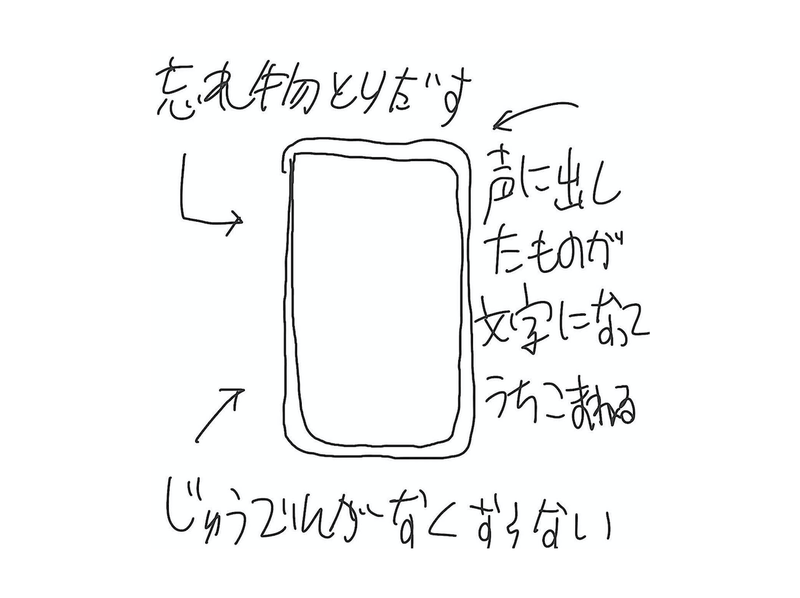 忘れ物とりだす
声に出し
たものが
文字になって
うちこまれる
じゅうでんがなくならない